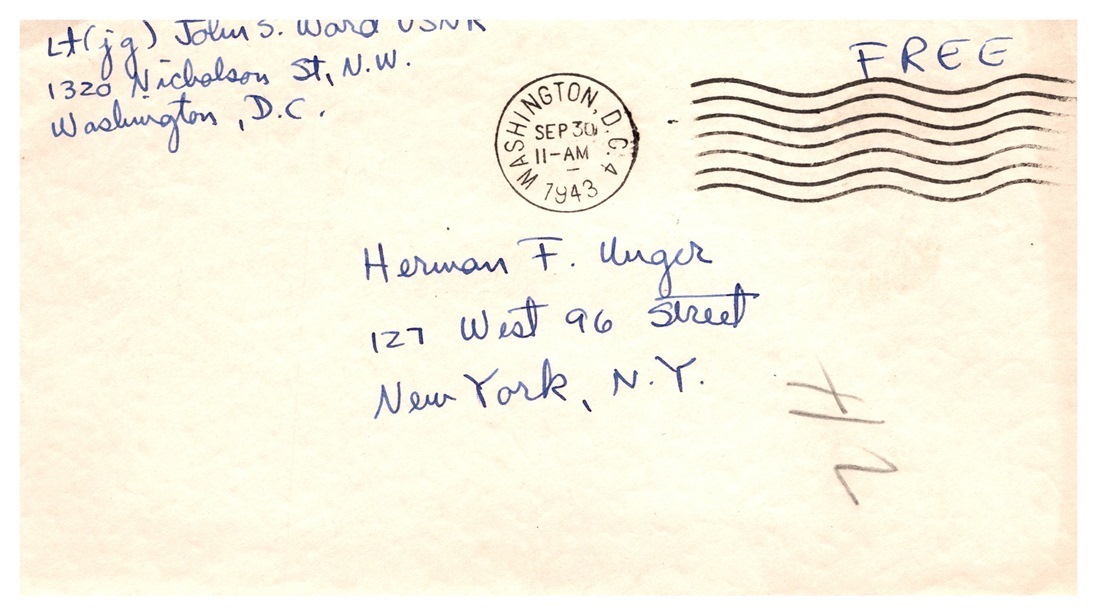 Lt(jg) John S. Ward USNR
1320 Nicholson St, N.W.
Washington, D.C.
FREE
WASHINGTON, D.C. 4
SEP 30
11-AM
1943
Herman F. Unger
127 West 96 Street
New York, N.Y.